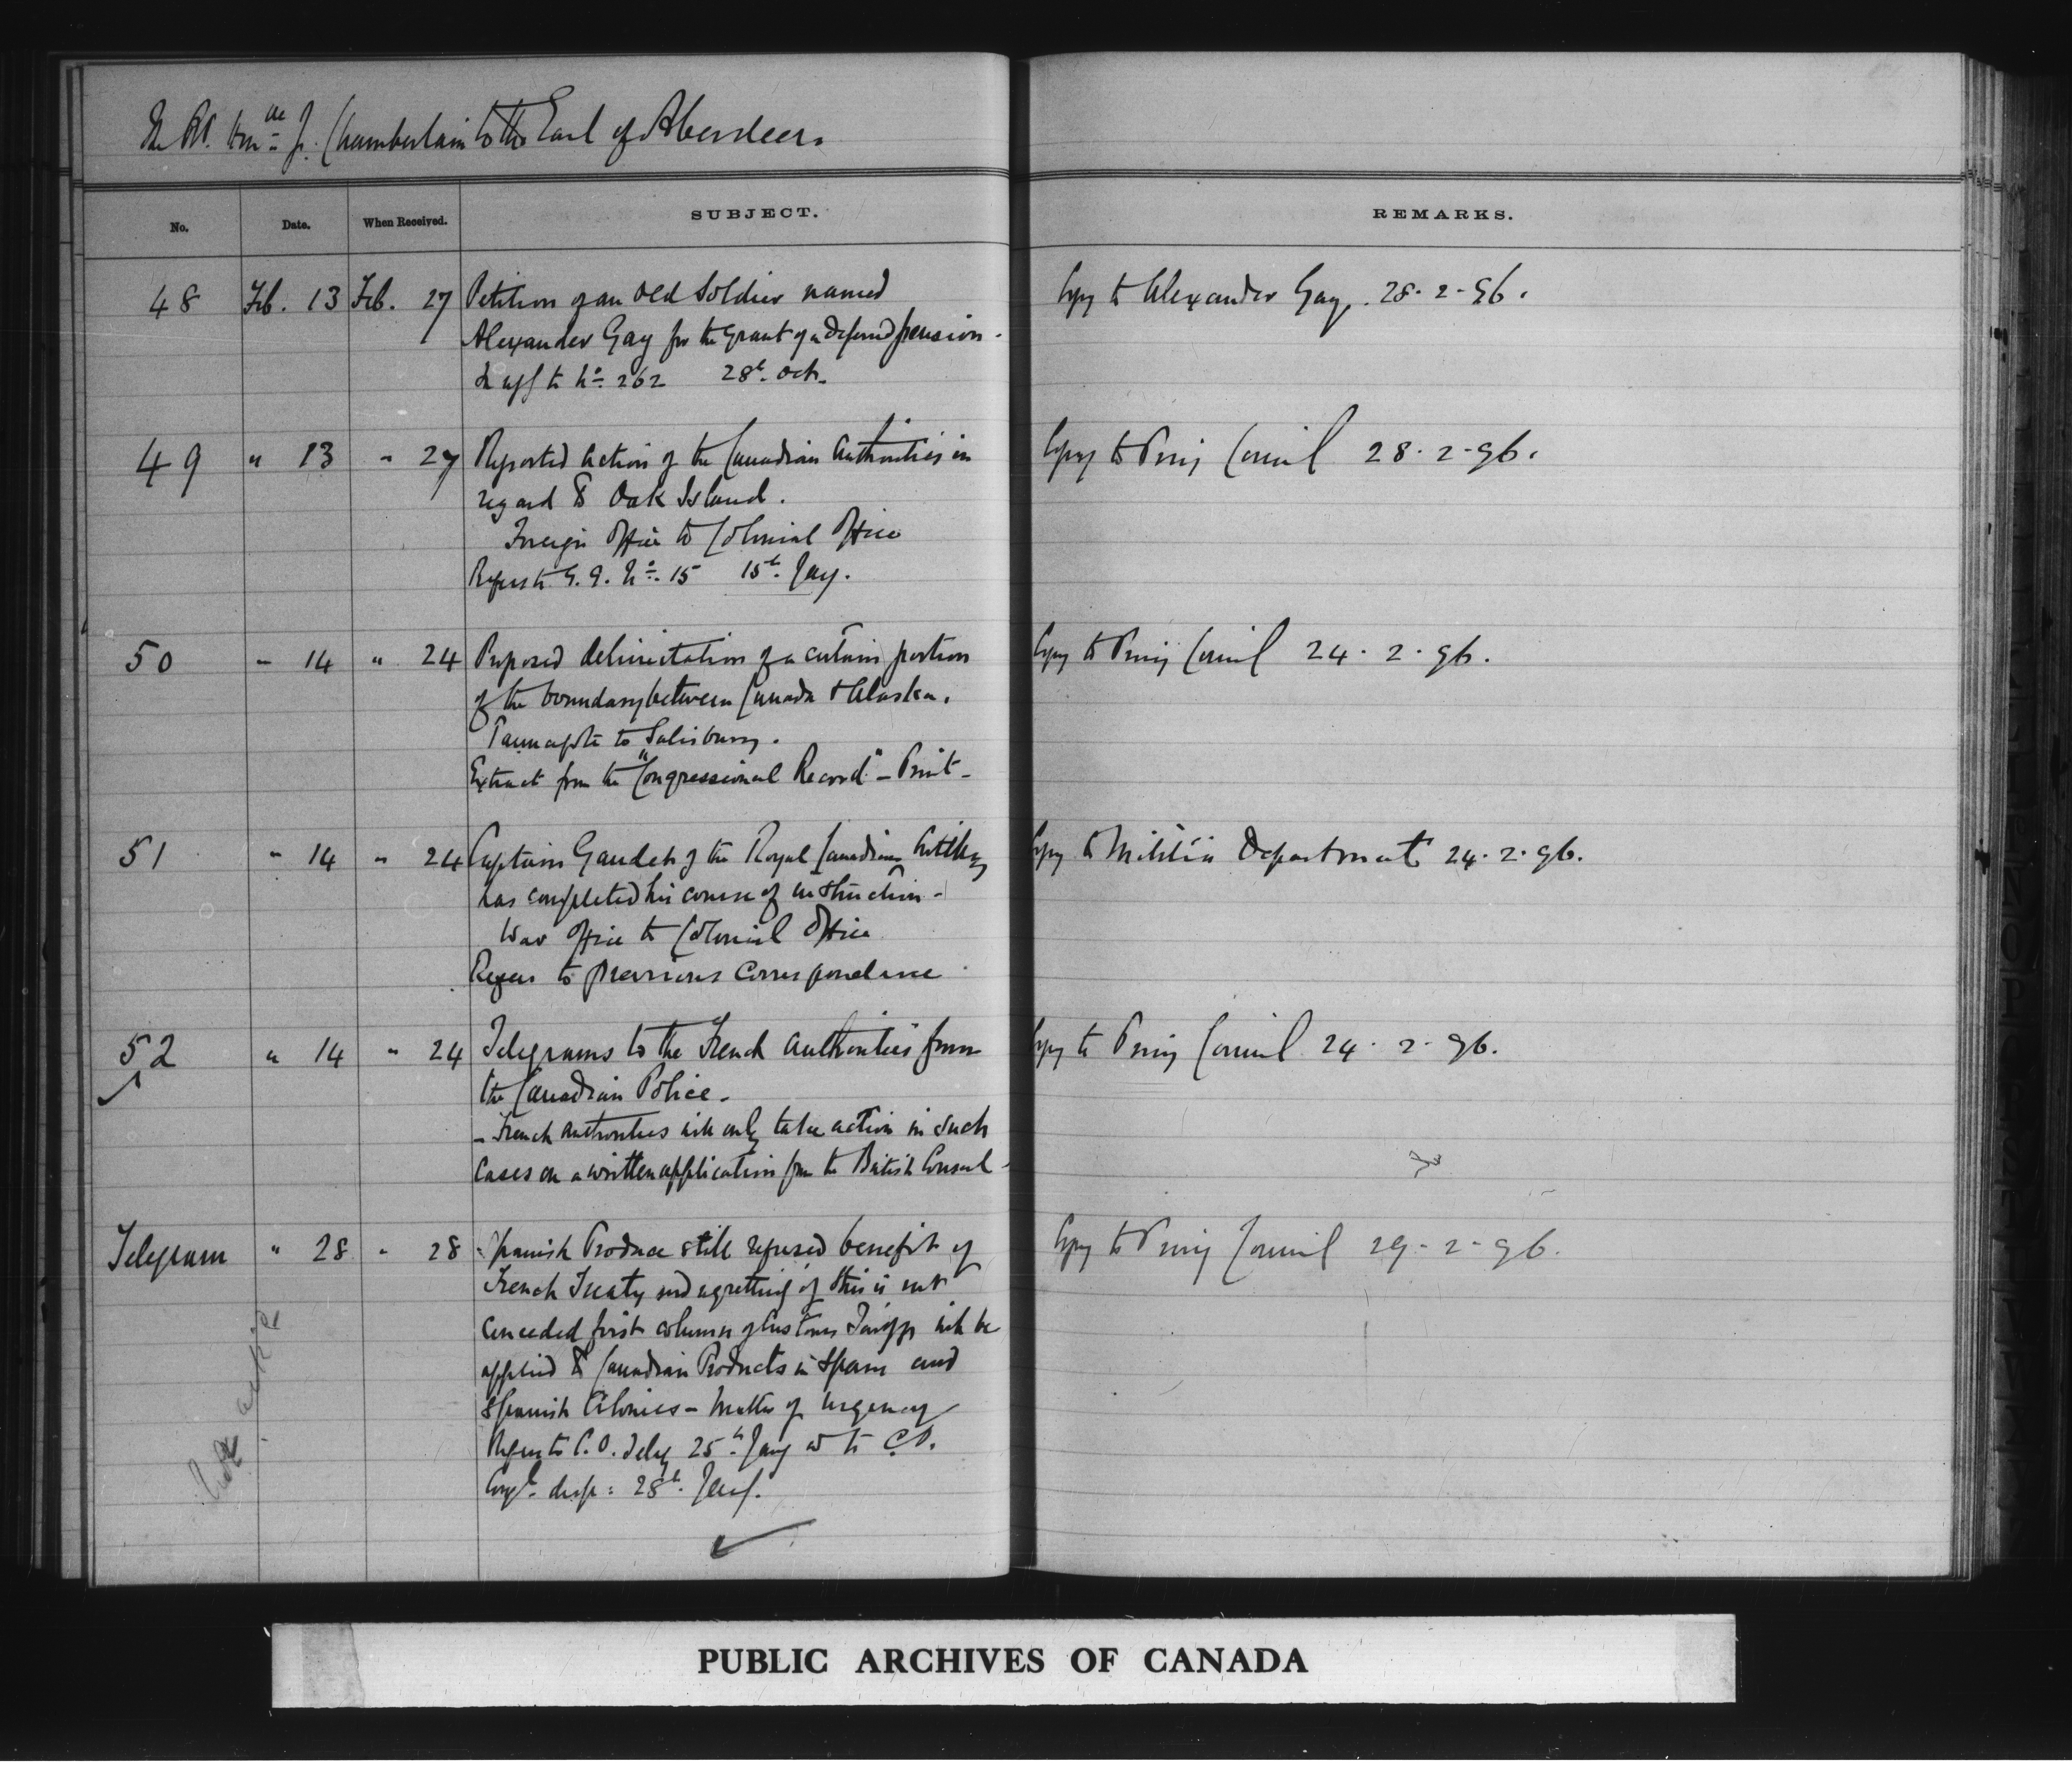 The Rt. Hon.ble J. Chamberlain to the Earl of Aberdeen.
No. Date. When Received. SUBJECT. REMARKS.
48 Feb. 13 Feb. 27 Petition of an old Soldier named Copy to Alexander Gay. 28.2.96.
Alexander Gay for the grant of a deferred pension.
In ans to No. 262 28th. Oct.
49 " 13 " 27 Reported action of the Canadian Authorities in Copy to Privy Council 28.2.96.
regard to Oak Island.
Foreign Office to Colonial Office
Refers to G. G. No. 15 15th. Jany.
50 " 14 " 24 Proposed delimitation of a certain portion Copy to Privy Council 24.2.96.
of the boundary between Canada & Alaska.
Pauncefote to Salisbury.
Extract from the "Congressional Record" - Print -
51 " 14 " 24 Captain Gaudet of the Royal Canadian Artillery Copy to Militia Department 24.2.96.
has completed his course of instruction -
War Office to Colonial Office
Refers to previous correspondence
52 " 14 " 24 Telegrams to the French Authorities from Copy to Privy Council 24.2.96.
the Canadian Police.
- French authorities will only take action in such
cases on a written application from the British Consul -
Telegram " 28 " 28 Spanish Produce still refused benefit of Copy to Privy Council 29-2-96.
French Treaty and regretting if this is not
conceded first column of Customs Tariff will be
applied to Canadian Products in Spain and
Spanish Colonies - Matter of urgency
Refers to C. O. Teleg 25th. Jany to C.O.
desp: 28th. Jany.
PUBLIC ARCHIVES OF CANADA